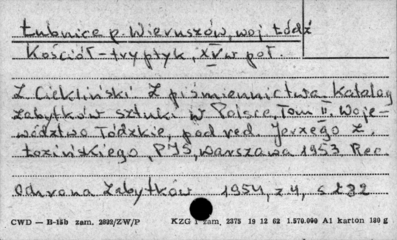 Łubnice p. Wieruszów, woj. Łódź
Kościół – tryptyk, XV w poł.
Z. Ciekliński Z piśmiennictwa. Katalog
zabytków sztuki w Polsce, Tom II. Woje-
wództwo Łódzkie, pod red. Jerzego Z.
Łozińskiego, PIS, Warszawa 1953 Rec.
Ochrona Zabytków 1954, z 4, s 232
CWD — B-15b zam. 2022/ZW/P KZG 1 zam. 2375 19 12 62 1.570.000 A1 karton 180 g